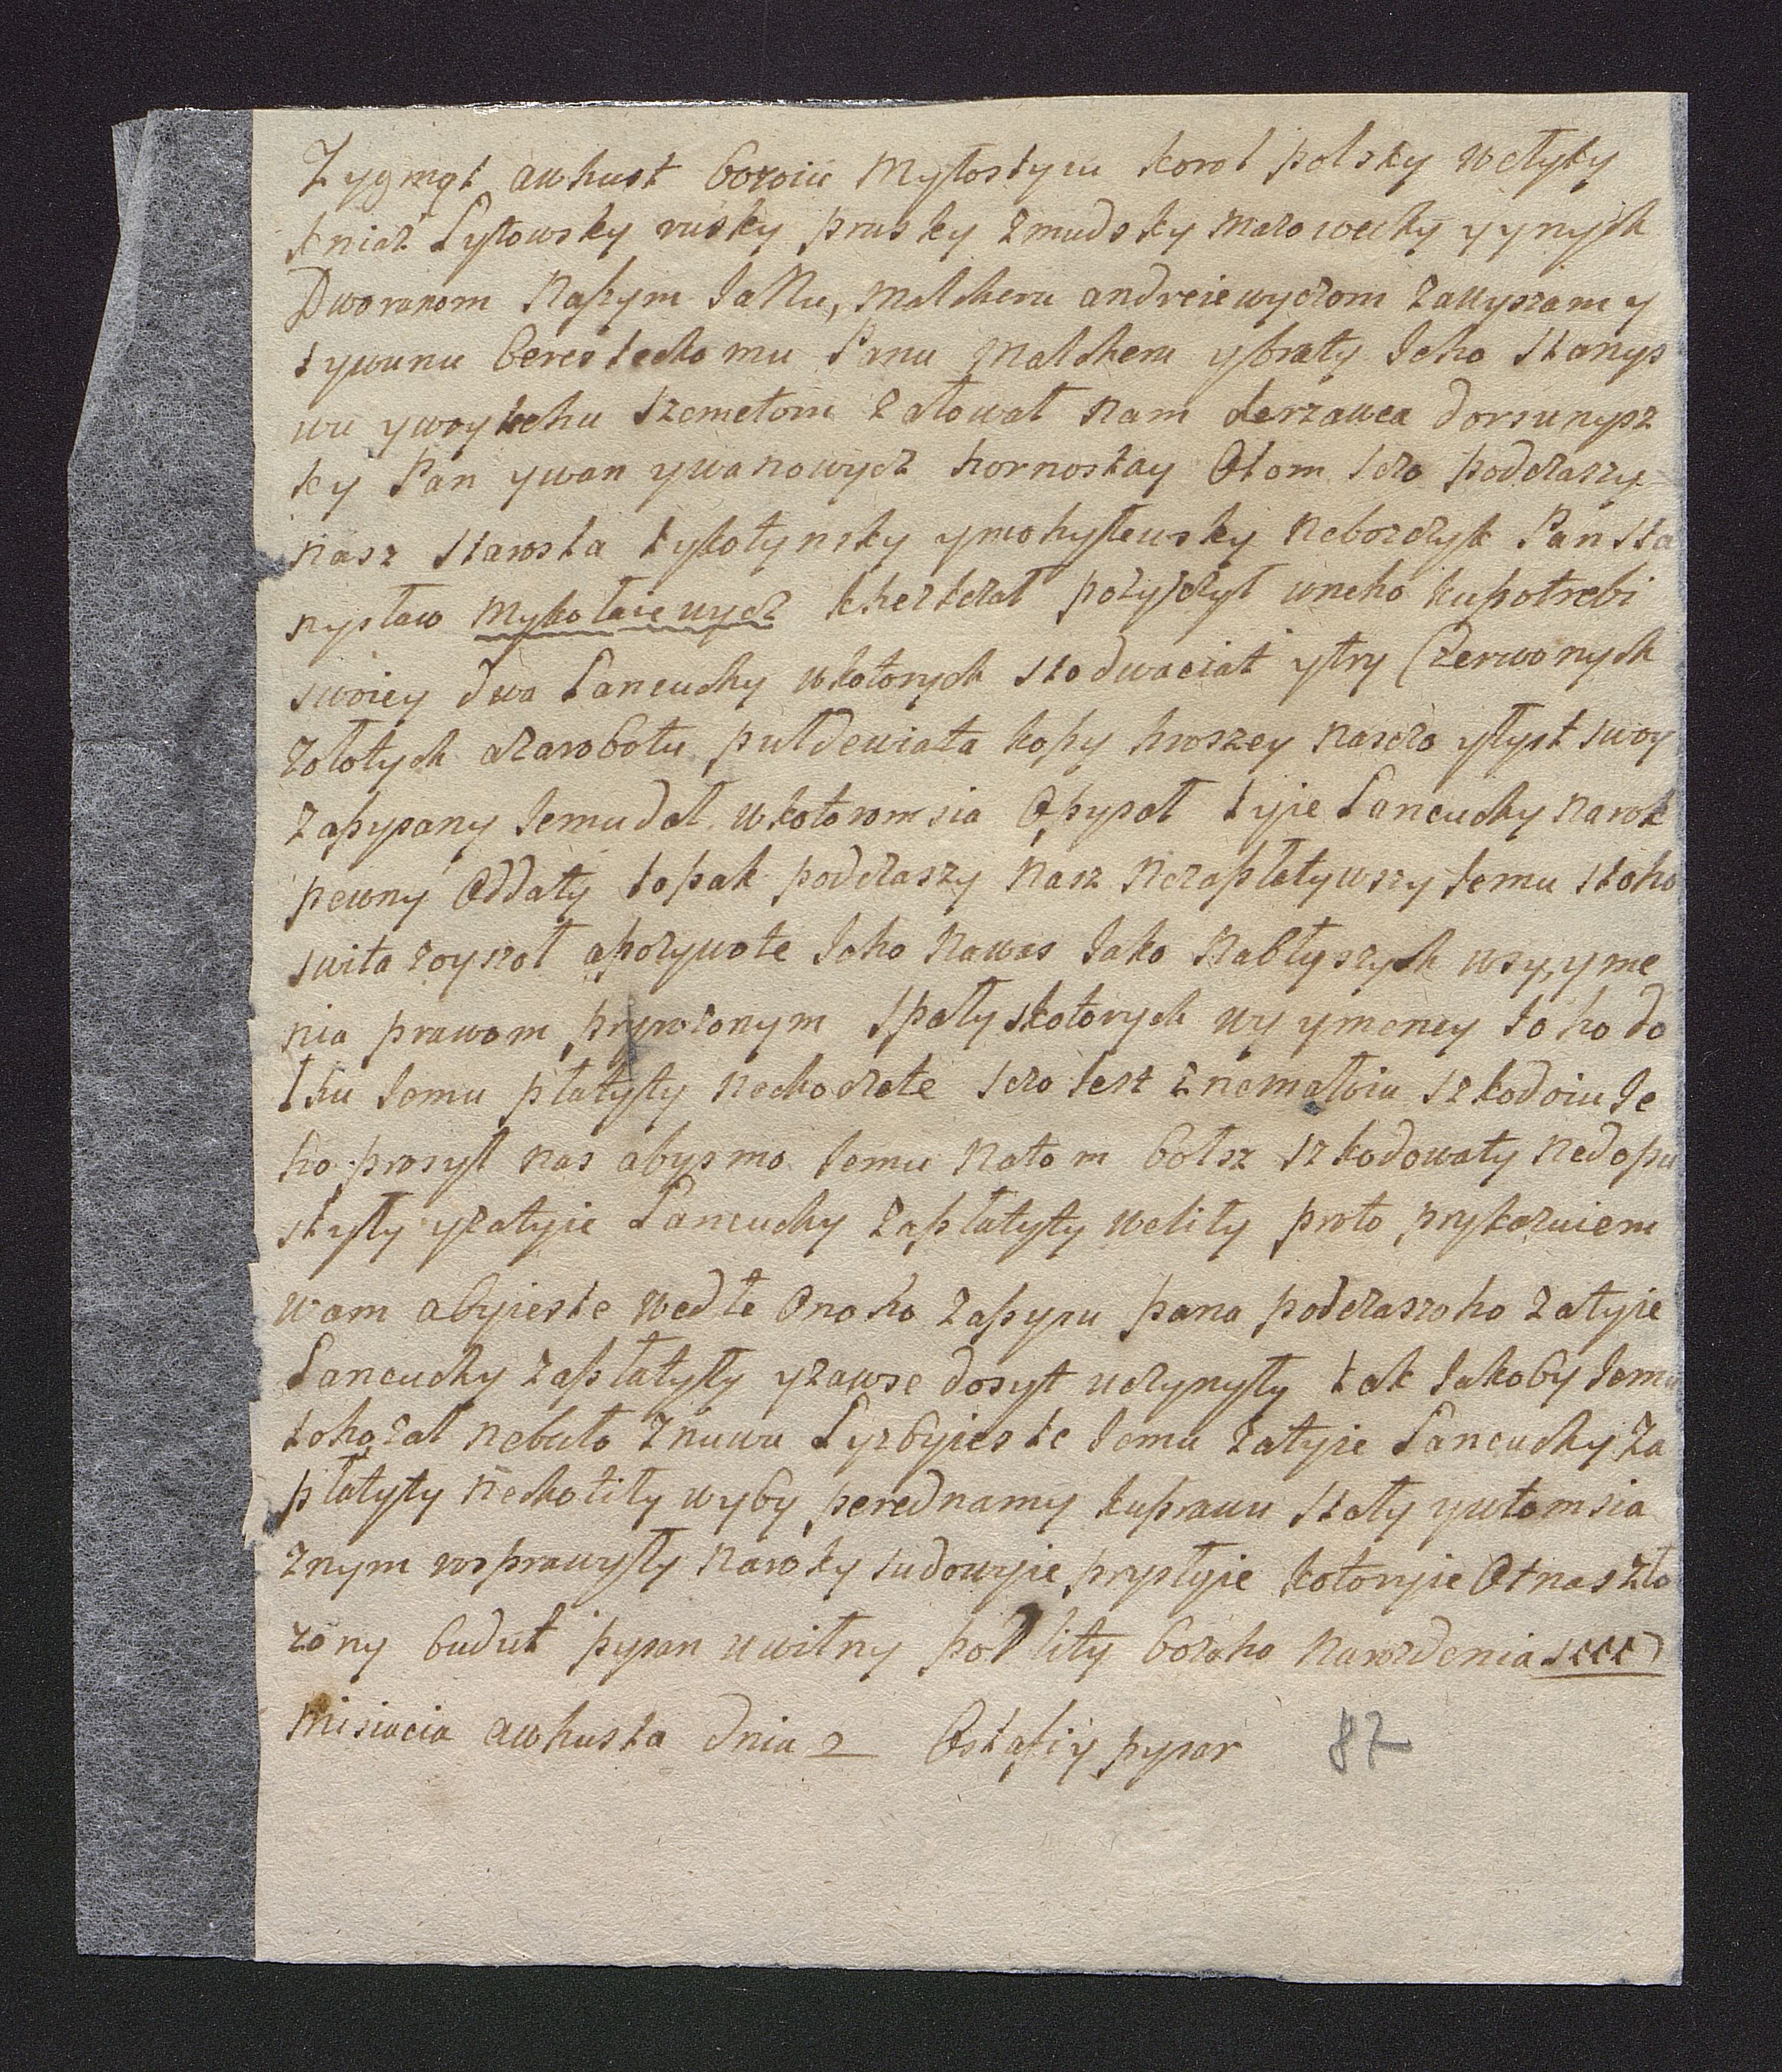 Zygmąt awhust bozoiu Mylostyiu korol polsky welyky
kniaź Lytowsky rusky prusky zmudsky mazowecky yynych
Dworanom Naszym Jakku, Malcheru andreiewyczom Zawyszam y
tywunu berestechomu Panu Malcheru ybraty Jeho Stanys
wu ywoytechu Szemetom Załował nam derzawca dorsunysz
ky Pan ywan ywanowycz hornostay Otom sczo podczaszy
nasz starosta tykotynsky ymohylewsky nebozczyk Pan Sta
nysław Mykołaiewycz khesztolt pozyczył uneho kupotrebi
swoiey dwa Lancuchy wkotorych stodwaciat ytry Czerwonych
zołotych azarobotu puldewiata kopy hroszey nasczo ylyst swoy
Zapysany Jemu dał wkotorom sia Opysał tyie Lancuchy narok
pewny Oddaty topak podczaszy Nasz Nezapłatywszy Jemu stoho
swita zoyszoł apozywote Joho Nawas Jako Nabłyszych wsy, yme
nia prawom pryrozonym spały skotorych wy ymeney Joho do
lhu Jemu płatyty nechoczete sczo Jest Znemałoiu szkodoiu Je
ho prosył nas abysmo Jemu Natom bolsz szkodowaty nedopu
styły yzatyie Lancuchy zapłatyty weliły proto prykazuiem
wam abyieste wedle Onoho Zapysu pana podczaszoho zatyie
Lancuchy zapłatyły yzawse dosyt uczynyły tak Jakoby Jemu
tohożal nebuło Znuwu Lyzbyieste Jemu zatyie Lancuchy za
płatyty nechotiły wyby perednamy kuprawu stały ywtomsia
znym rosprawyły naroky sudowyie prysłyie kotoryie Otnas zło
zony budut pysan uwilny pod lity bozoho narozdenia
Misiacia awhusta dnia 2 Ostafiy pysar 87